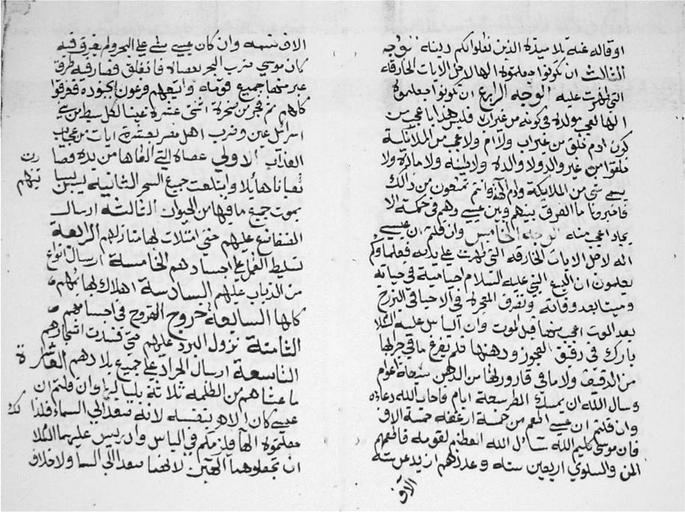 او قاله عنه تلاميذه الذين نقلوا لكم دينه الوجه
الثالث ان تكونوا جعلتموه الها لاجل الايات الخارقه
التي ظهرت عليه الوجه الرابع ان تكونوا جعلتموه
الها لعجب مولده وكونه من غير اب فليس هذا باعجب من
كون ادم خلق من غير اب ولا ام ولا اعجب من الملائكة
خلقوا من غير والد ولا والدة ولا طينة ولا مادة ولا
يسمى شي من الملايكة وادم الهة وانتم تمنعون من ذالك
فاخبرونا ما الفرق بينهم وبين عيسى وهم في حكمة الا
يجاد اعجب منه الوجه الخامس وان قلتم ان عيسى
اله لاجل الايات الخارقه التي ظهرت على يديه فعلماوكم
يعلمون ان اليسع النبي عليه السلام احيا ميتا في حياته
وميتا بعد وفاته المعجزة في الاحيا في البرزخ
بعد الموت اعجب منها قبل الموت وان الياس عليه السلام
بارك في دقيق العجوز ودهنها فلم يفرغ ما في جرابها
من الدقيق ولا ما في قارورتها من الدهن سبعة اعوام
وسال الله ان يمسك المطر سبعة ايام فاجاب الله دعاءه
وان قلتم ان عيسى اطعم من خمسة ارغفة خمسة الاف
فان موسى كليم الله سأل الله لقومه فاطعمهم
المن والسلوى اربعين سنة وعددهم ازيد من ستة
الاف
الاف نسمة وان كان عيسى مشى على البحر ولم يغرق فيه
كان موسى ضرب البحر بعصاه فانفلق فصار فيه طرق
عبر منها جميع قومه واتبعهم فرعون بجنوده فغرقوا
كلهم ثم فجر من صخرة اثنتى عشرة عينا لكل سبط من بني
اسرائل عين وضرب اهل مصر بعشرة ايات من عجايب
العذاب الاولى عصاة التي القاها من يده فصارت
ثعبانا هائلا وابتلعت جميع السحر الثانية
بموت جميع ما فيها من الحيوان الثالثة ارسال
الضفادع عليهم حتى امتلات لها منازلهم الرابعة
تسليط القمل على اجسادهم الخامسة ارسال انواع
من الذباب عليهم السادسة اهلاك بهائمهم
كلها السابعة خروج القروح في اجسامهم
الثامنة نزول البرد عليهم حتى فسدت اشجارهم
التاسعة ارسال الجراد على جميع بلادهم العاشرة
ما غشاهم من الظلمة ثلاثة بلياليها وان قلتم ان
عيسى كان الاه بنفسه لانه صعد الى السماء فلذلك
جعلتموه الها فلزمكم في الياس وادريس عليهما السلام
ان تجعلوهما الهين لانهما صعدا الى السماء ولا خلاف